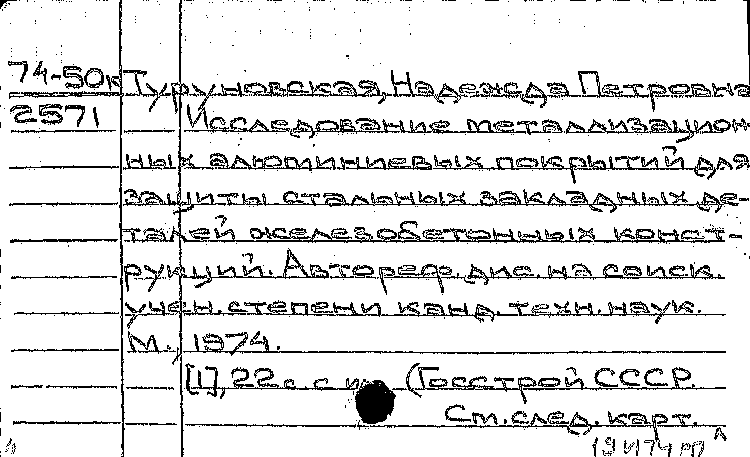 74-50к Туруновская, Надежда Петровна
2571 Исследование металлизацион-
ных алюминиевых покрытий для
защиты стальных закладных де-
талей железобетонных конст-
рукций. Автореф. дис. на соиск.
учен. степени канд. техн. наук.
М., 1974.
[1], 22 с. с ил. (Госстрой СССР.
См. след. карт.